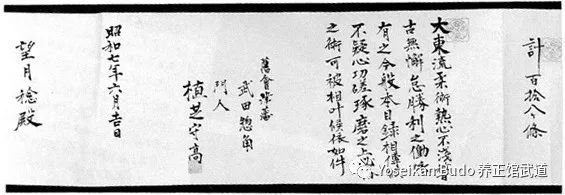 計 百拾八ケ條
大東流柔術熱心不淺
古無懈怠勝利之働
有之今般本目録相傳
不疑心切磋琢磨之上必
之術可被相叶候依如件
舊會津藩
武田惣角
門人
植芝守高
昭和七年六月吉日
望月稔殿
Yoseikan Budo 养正馆武道